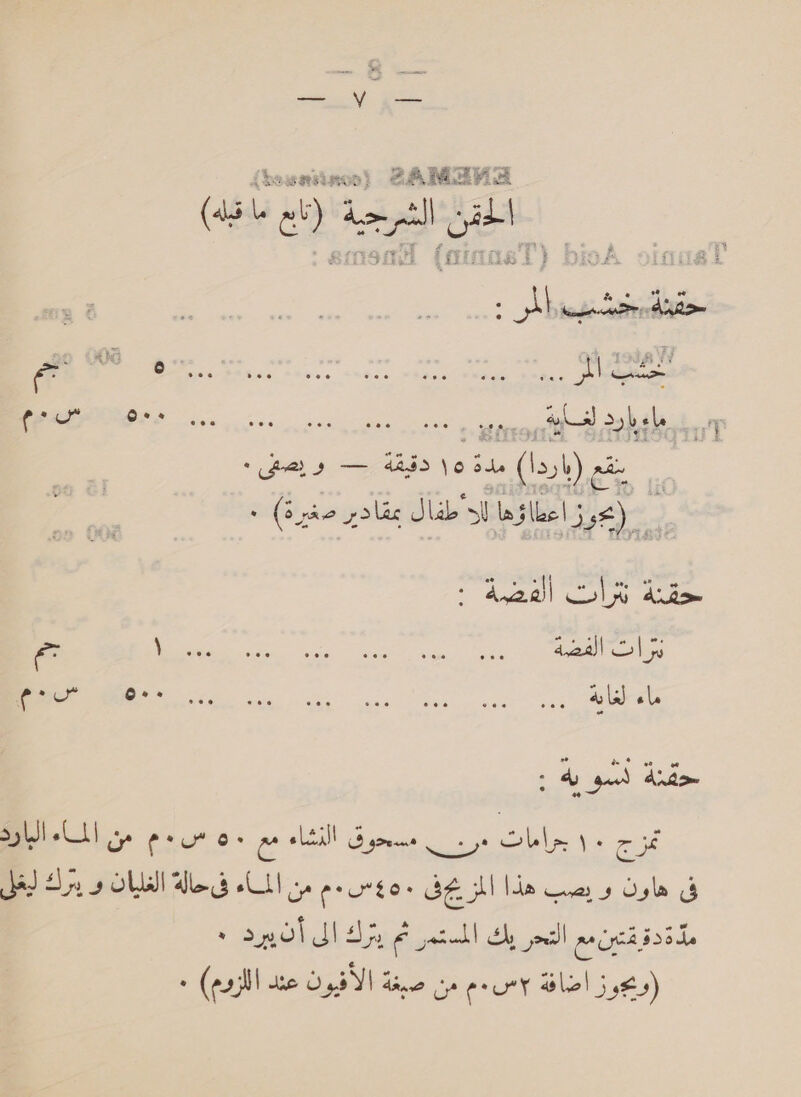 — ٧ —
الحقن الشرجية (تابع ما قبله)
حقنة خشب المر :
خشب المر ... ... ... ... ... ... ... ٥ جم
ماء بارد لغاية ... ... ... ... ... ... ٥٠٠ س٠م
ينقع (باردا) مدة ١٥ دقيقة — ويصفى ٠
(يجوز اعطاؤها للأطفال بمقادير صغيرة) ٠
حقنة نترات الفضة :
نترات الفضة ... ... ... ... ... ... ١ جم
ماء لغاية ... ... ... ... ... ... ... ٥٠٠ س٠م
حقنة نشوية :
تمزج ١٠ جرامات من مسحوق النشاء مع ٥٠ س٠م من المـاء البارد
فى هاون ويصب هذا المزيج فى ٤٥٠ س٠م من المـاء فى حالة الغليان ويترك ليغلى
مدّة دقيقتين مع التحريك المستمر ثم يترك الى أن يبرد ٠
(ويجوز اضافة ٢ س٠م من صبغة الأفيون عند اللزوم) ٠